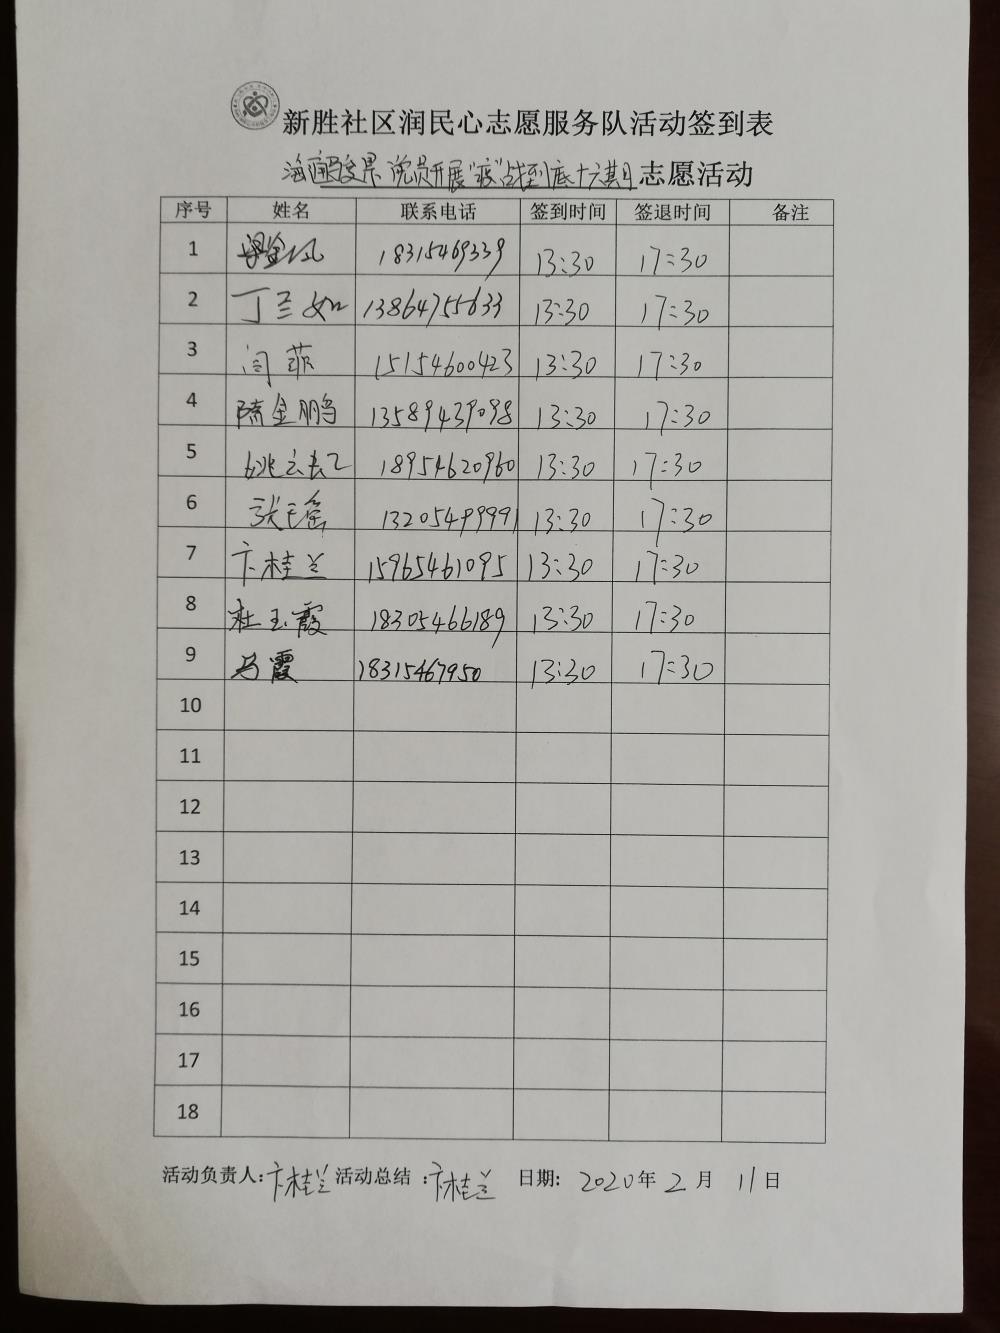 新胜社区润民心志愿服务队活动签到表
党员开展"疫"战到底十六期 志愿活动
序号 姓名 联系电话 签到时间 签退时间 备注
1 18315469339 13:30 17:30
2 丁兰如 13864755633 13:30 17:30
3 闫菲 15154600423 13:30 17:30
4 隋金鹏 13589439098 13:30 17:30
5 姚云 18954620960 13:30 17:30
6 张毛 13205499991 13:30 17:30
7 卞桂兰 15965461095 13:30 17:30
8 杜玉霞 18305466189 13:30 17:30
9 马霞 18315467950 13:30 17:30
10
11
12
13
14
15
16
17
18
活动负责人:卞桂兰 活动总结:卞桂兰 日期: 2020年2月11日